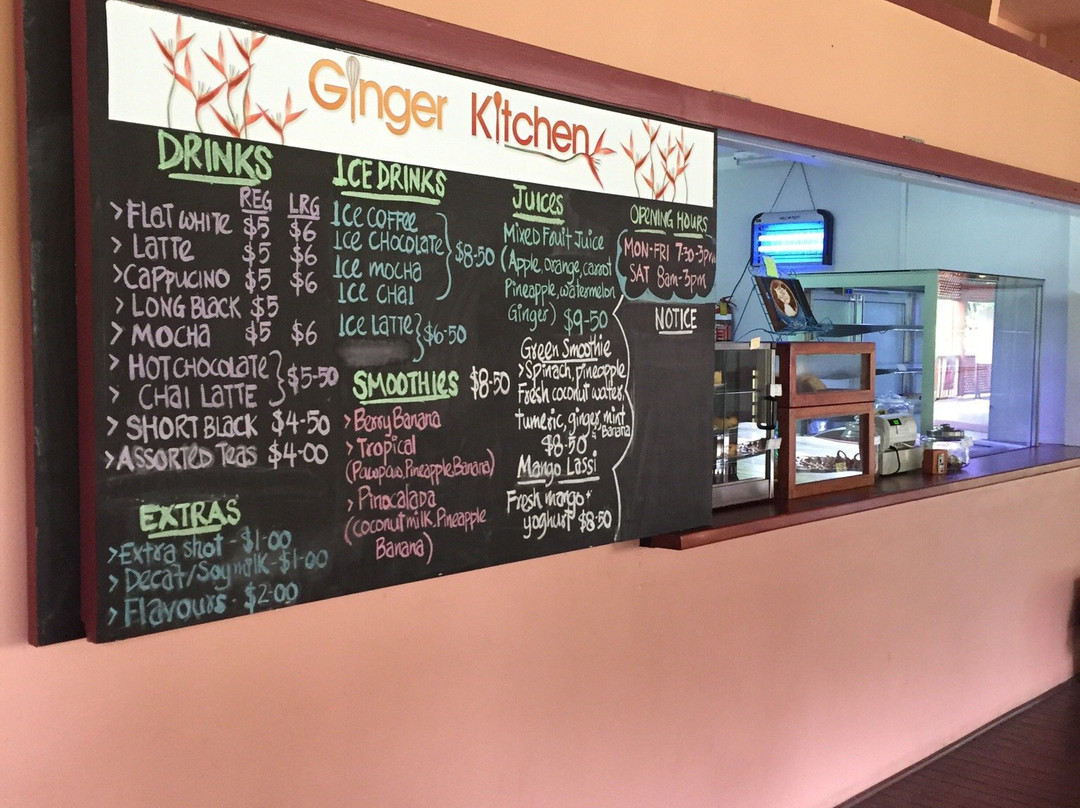 Ginger Kitchen
DRINKS
REG LRG
> FLAT WHITE $5 $6
> LATTE $5 $6
> CAPPUCINO $5 $6
> LONG BLACK $5
> MOCHA $5 $6
> HOT CHOCOLATE
CHAI LATTE } $5-50
> SHORT BLACK $4-50
> ASSORTED TEAS $4-00
EXTRAS
> Extra shot - $1-00
> Decaf/Soymilk - $1-00
> Flavours - $2-00
ICE DRINKS
ICE COFFEE
ICE CHOCOLATE } $8-50
ICE MOCHA
ICE CHAI
ICE LATTE } $6-50
SMOOTHIES $8-50
> Berry Banana
> Tropical
(Pawpaw, Pineapple, Banana)
> Pinocalada
(coconut milk, Pineapple
Banana)
JUICES
MIXED FRUIT JUICE
(Apple, orange, carrot
Pineapple, watermelon
Ginger) $9-50
Green Smoothie
> Spinach, pineapple
Fresh coconut water,
tumeric, ginger, mint
& Banana
$8-50
Mango Lassi
Fresh mango +
yoghurt $8-50
OPENING HOURS
MON-FRI 7:30-3pm
SAT 8am-3pm
NOTICE